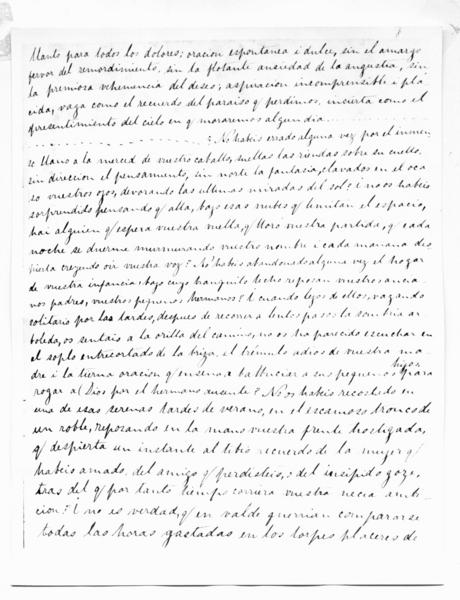 llanto para todos los dolores; oracion espontanea i dulce, sin el amargo
fervor del remordimiento, sin la flotante ansiedad de la angustia, sin
la premiosa vehemencia del deseo; aspiracion incomprensible i plá
cida, vaga como el recuerdo del paraiso q/ perdimos, incierta como el
presentimiento del cielo en q/ moraremos algun dia........
.......................¿No habeis errado alguna vez por el inmen
so llano a la merced de vuestro caballo, sueltas las riendas sobre su cuello,
sin direccion el pensamiento, sin norte la fantasia, clavados en el oca
so vuestros ojos, devorando las ultimas miradas del sol; i no os habeis
sorprendido pensando q/ alla, bajo esas nubes q/ limitan el espacio,
hai alguien q/ espera vuestra vuelta, q/ lloro vuestra partida, q/ cada
noche se duerme murmurando vuestro nombre i cada mañana des
pierta creyendo oir vuestra voz? ¿No habeis abandonado alguna vez el hogar
de vuestra infancia, bajo cuyo tranquilo techo reposan vuestros ancia
nos padres, vuestros pequeños hermanos? I cuando lejos de ellos, vagando
solitario por las tardes, despues de recorrer a lentos pasos la sombria ar
boleda, os sentais a la orilla del camino, no os ha parecido escuchar en
el soplo entrecortado de la briza, el trémulo adios de vuestra ma
dre i la tierna oracion q/ enseña a balbuciar a sus pequeños hijos para
rogar a Dios por el hermano ausente? ¿No os habeis recostado en
una de esas serenas tardes de verano, en el escamoso tronco de
un roble, reposando en la mano vuestra frente hostigada,
q/ despierta un instante al tibio recuerdo de la mujer q/
habeis amado, del amigo q/ perdisteis, del insipido goze,
tras del q/ por tanto tiempo corriera vuestra necia ambi-
cion? I no es verdad, q/ en valde querrian compararse
todas las horas gastadas en los torpes placeres de